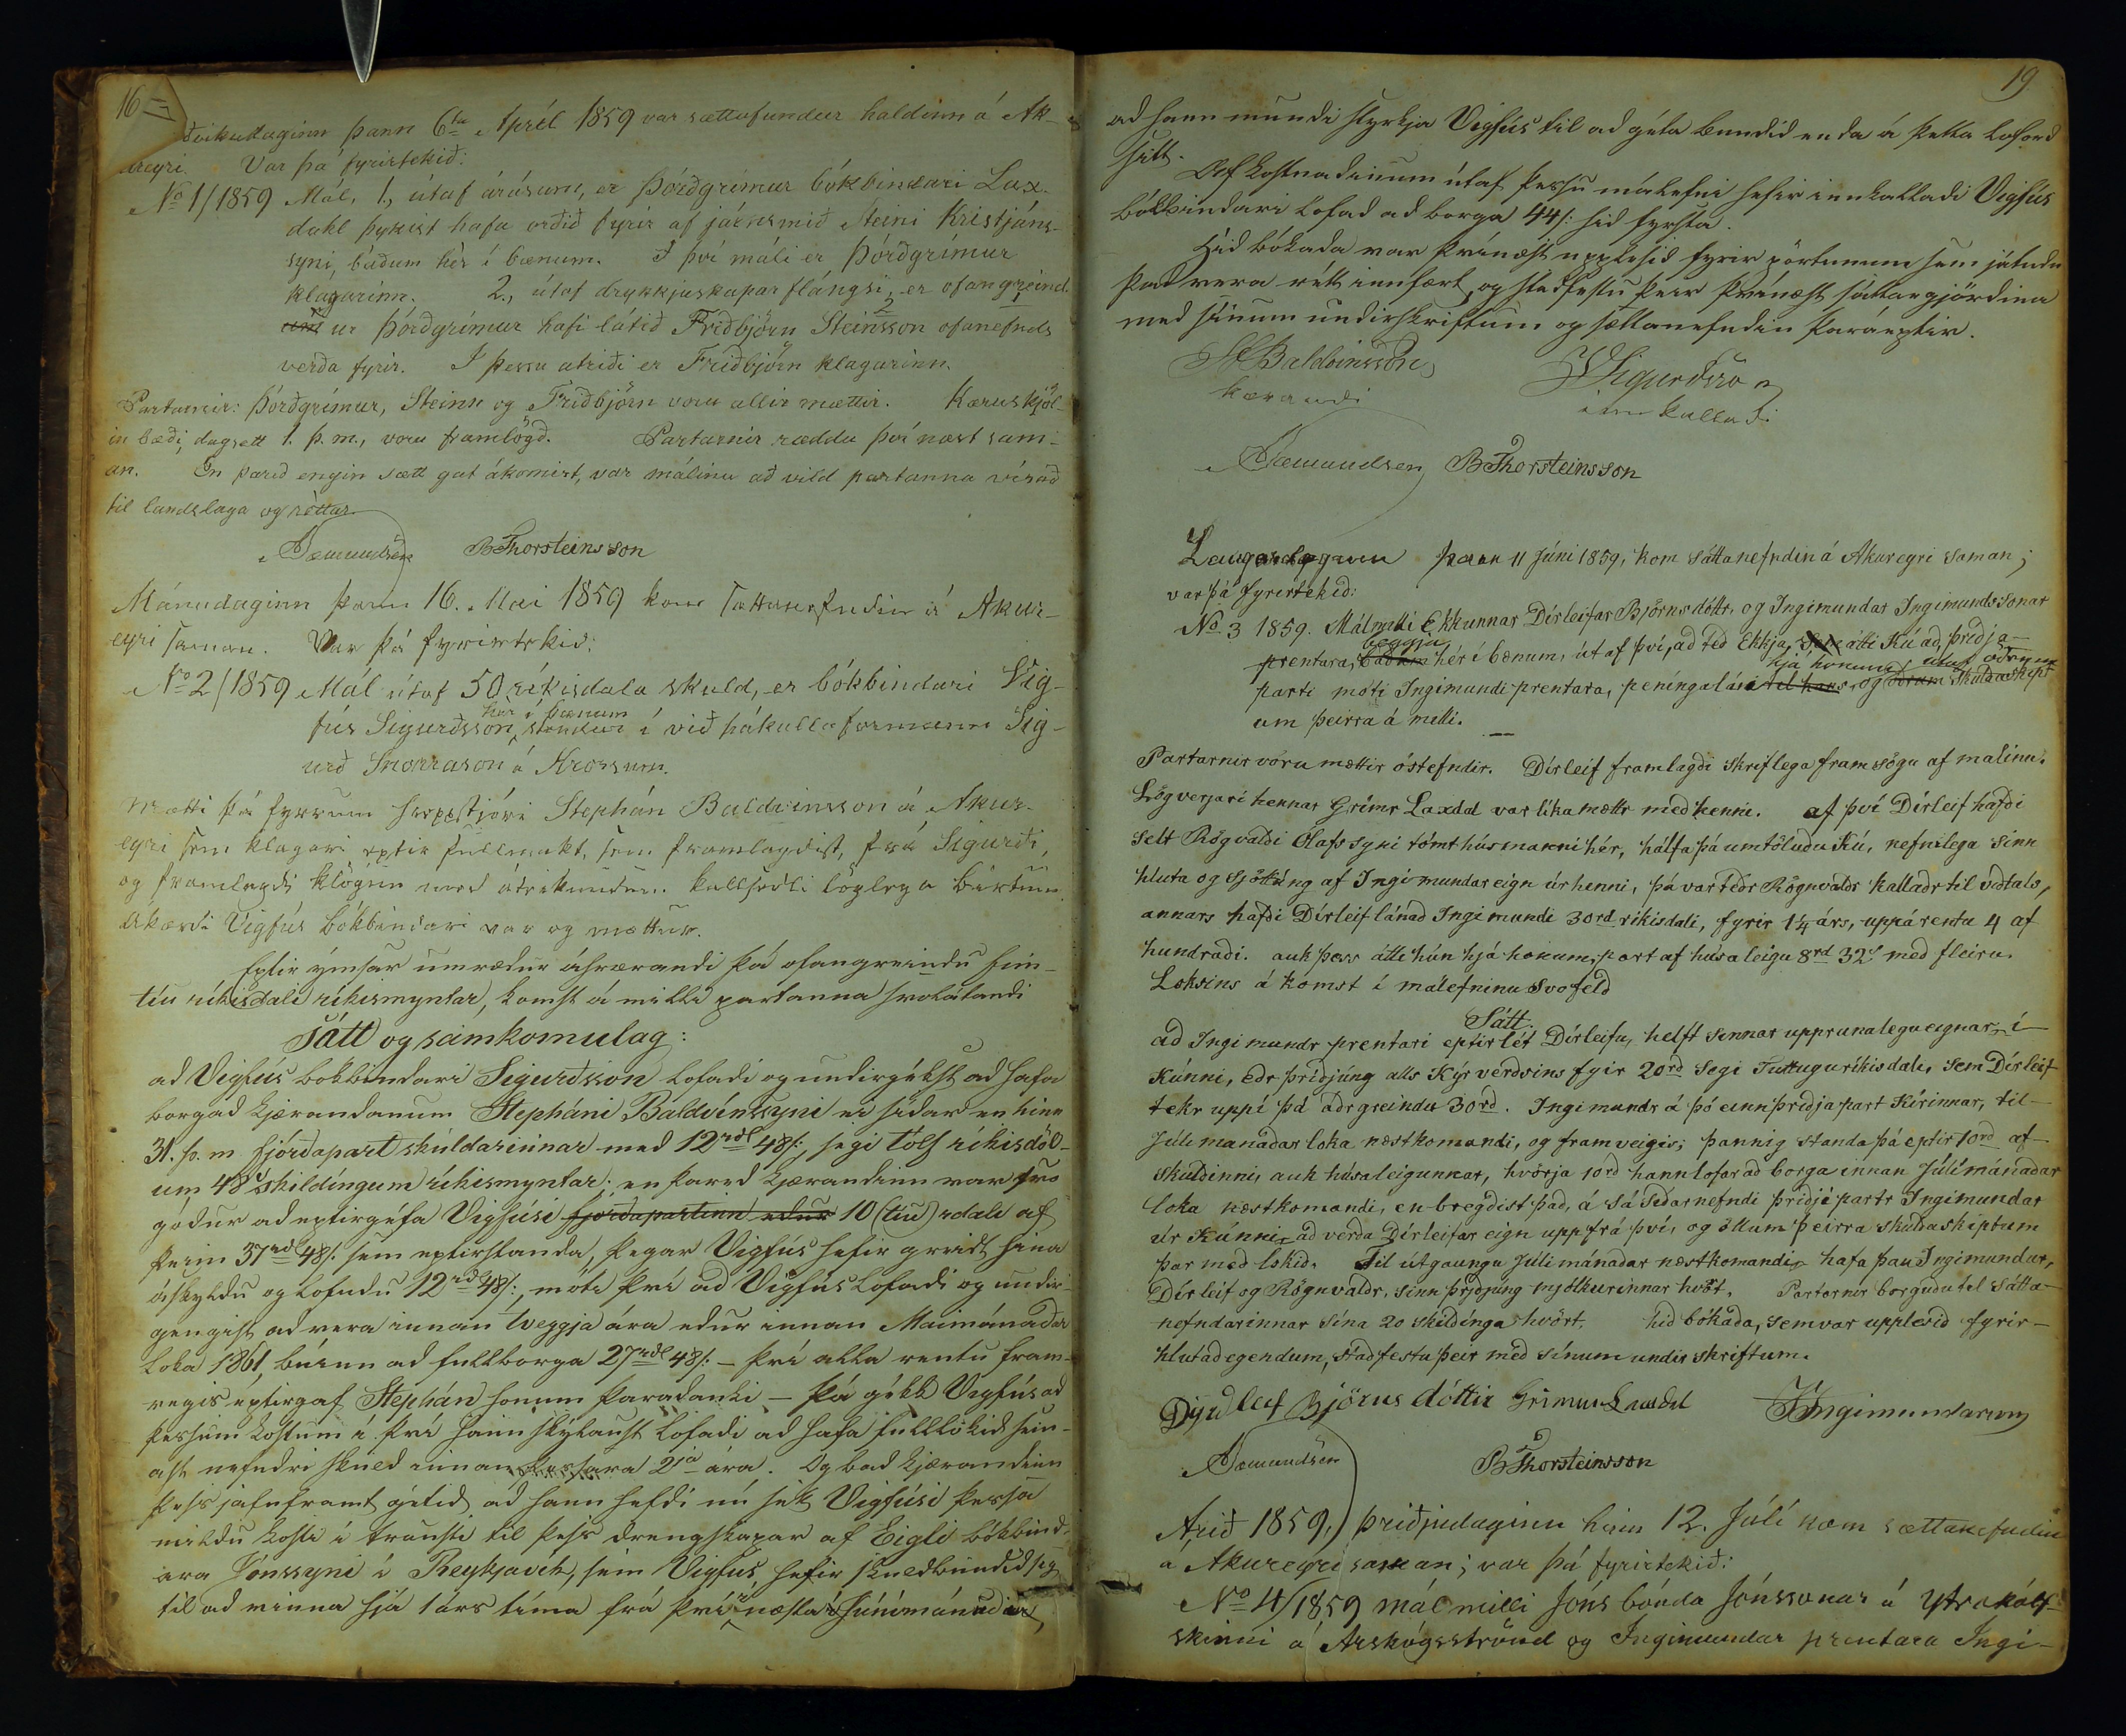 16
Miðvikudaginn þann 6ta Apríl 1859 var sættafundur haldinn á Ak-
ureyri. Var þá fyrirtekið:
No 1/1859 Mál, 1., útaf árásum, er Þórðgrímur bókbindari Lax-
dahl þykist hafa orðið fyrir af járnsmið Steini Kristjáns-
syni, báðum hér í bænum. Í því máli er Þórðgrímur
klagarinn. 2., útaf drykkjuskapar flángsi, er ofangreind-
ur Þórðgrímur hafi látið Friðbjörn Steinsson ofanefnds
verða fyrir. Í þessu atriði er Friðbjörn klagarinn.
Partarnir: Þórðgrímur, Steinn og Friðbjörn voru allir mættir. Kæruskjöl-
in bæði, dagsett 1. þ. m., voru framlögð. Partarnir ræddu því næst sam-
an. En þareð engin sætt gat ákomist, var málinu að vild partanna vísað
til landslaga og réttar.
Sæmundsen BThorsteinsson
Mánudaginn þann 16. Mai 1859 kom sáttanefndin á Akur-
eyri saman. Var þá fyrirtekið:
No 2/1859 Mál útaf 50 ríkisdala skuld, er bókbindari Vig-
fús Sigurðsson hér í bænum stendur í við þákallaformann Sig-
urð Snorrason á Krossum.
Mætti þá fyrrum hreppstjóri Stephán Baldvinsson á Akur-
eyri sem klagari eptir fullmakt, sem framlagdist, frá Sigurði,
og framlagdi klögun med áteiknudum kallseðli löglega birtum
Ákærdi Vigfús bókbindari var og mættur.
Eptir ýmsar umrædur áhrærandi þá ofangreindu fim-
tíu ríkisdali ríkismyntar, komst á milli partanna svolátandi
Sátt og samkomulag:
ad Vigfús bókbindari Sigurdsson lofadi og undirgékst ad hafa
borgad kjærandanum Stepháni Baldvinssyni ei sídar en hinn
31. þ. m. fjórdapart skuldarinnar med 12rdl 48/:, segi tólf ríkisdöl-
um 48 skildíngum ríkismyntar; en þared kjærandinn var svo
gódur ad eptirgéfa Vigfúsi fjórdapartinn edur 10 (tíu) rdali af
þeim 37rdl 48/: sem eptirstanda, þegar Vigfús hefir greidt sína
áskyldu og lofudu 12rdl 48/:, móti því ad Vigfús lofadi og undir-
gengist ad vera innan tveggja ára edur innan Maimánadar
loka 1861, búinn ad fullborga 27rdl 48/: – því alla rentu fram-
vegis eptirgaf Stephán honum þaradauki – þá gékk Vigfús ad
þessum kostum í því hann skýlaust lofadi ad hafa fulllokid sein-
ast nefndri skuld innan þessara 2ja ára. Og bad kjærandinn
þess jafnframt gétid ad hann hefdi nú sett Vigfúsi þessa
mildu kosti í trausti til þess drengskapar af Eigli bókbind-
ara Jónssyni í Reykjavik, sem Vigfús hefir skuldbundid sig
til ad vinna hjá 1 árs tíma frá því næsta Júnímánudi
19
ad hann mundi styrkja Vigfús til ad géta bundid enda á þetta loford
sitt.
Af kostnadinum útaf þessu málefni hefir innkalladi Vigfús
bókbindari lofad ad borga 44/: hid fyrsta.
Hid bókada var þvínæst upplesid fyrir pörtunum sem játudu
þad vera rétt innfært, og stadfestu þeir þvínæst sáttargjördina
med sínum undirskriftum og sættanefndin þaráeptir.
StBaldvinsson VSigurdsson
kærandi innkalladi
Sæmundsen BThorsteinsson
Laugardaginn þann 11 Júni 1859, kom sáttanefndin á Akureyri saman;
var þá fyrirtekið:
No 3 1859. Málmilli Ekkunnar Dírleifar Björnsdóttr, og Ingimundar Ingimundssonar
prentara, beggja báðum hér í bænum, út af því, að téð Ekkja, átti Kú að, þriðja-
parti móti Ingimundi prentara, peníngalán hjá honum til hans, og útaf öðrum öðrum skuldaskipt-
um þeirra á milli.
Partarnir vóru mættir óstefndir. Dírleif framlagði skriflega framsögu af málinu.
Lögverjari hennar Grímr Laxdal var líka mættr með henni. af því Dírleif hafði
selt Rögvaldi Ólafssyni tómthúsmanni hér, hálfa þá umtöluðu Kú, nefnilega sinn
hluta og sjöttúng af Ingimundar eign úr henni, þá var téðr Rögnvaldr kallaðr til viðtals,
annars hafði Dírleif lánað Ingimundi 30rd ríkisdali, fyrir 1¼ árs, uppá renta 4 af
hundraði. auk þess átti hún hjá honum, part af húsaleigu 8rd 32s með fleiru.
Loksins á komst í málefninu svofeld
Sátt.
að Ingimundr prentari eptirlét Dírleifu, helft sinnar upprunalegu eignar, í
Kúnni, eðr þriðjúng alls Kýrverðsins fyir 20rd segi Tuttugu ríkisdali, sem Dírleif
tekr uppí þá áðrgreindu 30rd. Ingimundr á þó einn þriðjapart Kírinnar, til-
Júlimánaðar loka næstkomandi, og framveigis; þannig standa þá eptir 10rd af-
skuldinni, auk húsaleigunnar, hvörja 10rd hann lofar að borga innan Júlímánaðar
loka næstkomandi, en bregðist það, á sá síðarnefndi þriðji partr Ingimundar
úr Kúnni, að verða Dírleifar eign upp frá því, og öllum þeirra skuldaskiptum
þar með lokið. Til útgaungu Júlí mánaðar næstkomandi, hafa þau Ingimundur,
Dírleif og Rögnvaldr, sinn þriðjúng mjólkurinnar hvört. Partarnir borguðu til Sátta-
nefndarinnar sína 20 skildínga hvört. hið bókaða, sem var upplesið fyrir-
hlutaðegendum, staðfestu þeir með sínum undirskriftum.
Dyrdleif Björnsdóttir Grímur Laxdal IIngimundarson
Sæmundsen BThorsteinsson
Árið 1859, þriðjudaginn hinn 12. Júlí kom sættanefndin
á Akureyri saman; var þá fyrirtekið:
No 4/1859 mál milli Jóns bónda Jónssonar á Ytrakálf-
skinni á Árskógsströnd og Ingimundar prentara Ingi-